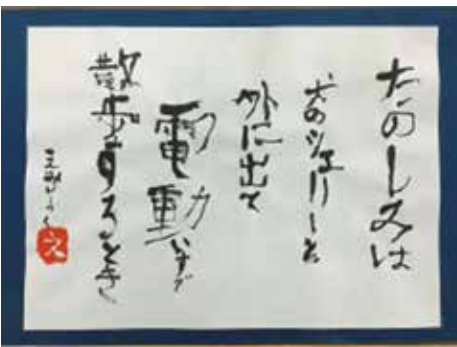 たのしみは
犬のシェリーと
外に出て
電動いすで
散歩するとき